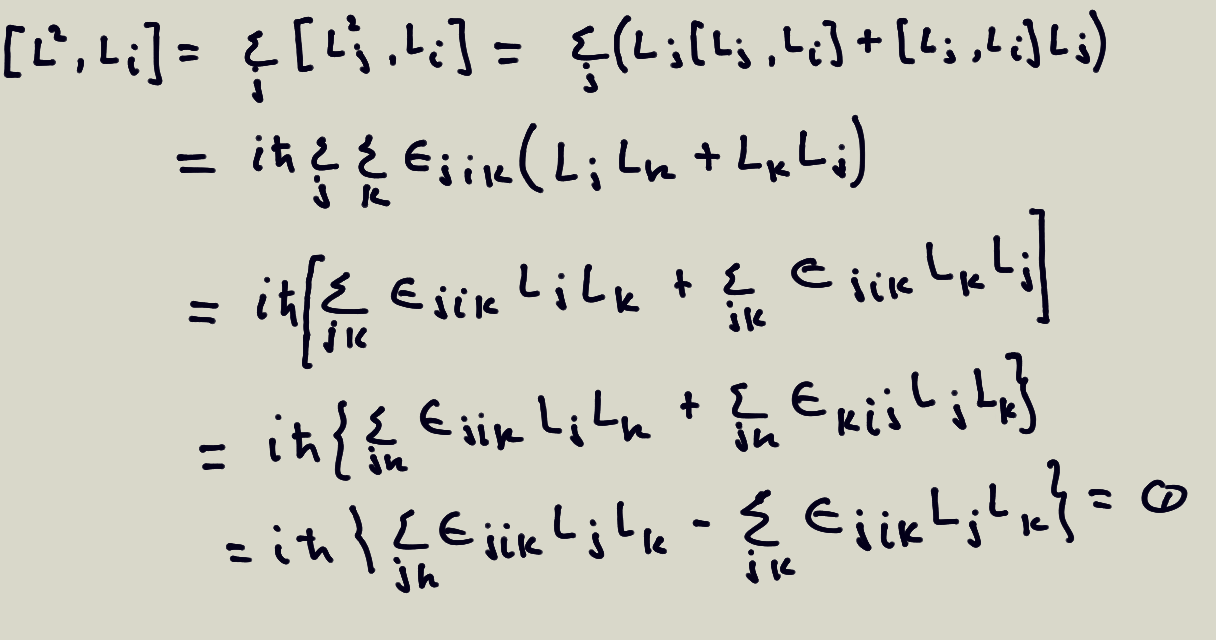 [L², Lᵢ] = Σ_j [L_j², Lᵢ] = Σ_j (L_j [L_j, Lᵢ] + [L_j, Lᵢ] L_j)
= iħ Σ_j Σ_k ϵ_jik (L_j L_k + L_k L_j)
= iħ [Σ_jk ϵ_jik L_j L_k + Σ_jk ϵ_jik L_k L_j]
= iħ {Σ_jk ϵ_jik L_j L_k + Σ_jk ϵ_kij L_j L_k}
= iħ {Σ_jk ϵ_jik L_j L_k - Σ_jk ϵ_jik L_j L_k} = 0